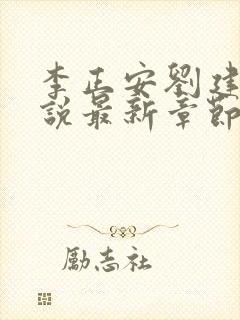 李正安劉建
說最新章節
勵志社